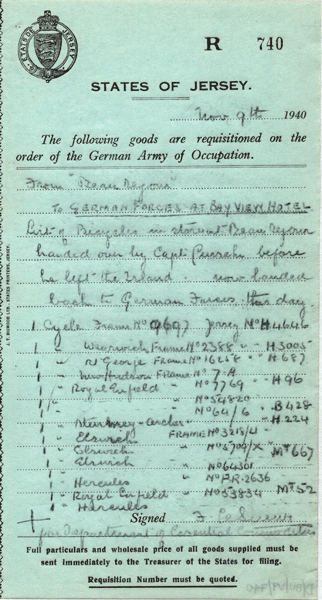 STATES OF JERSEY
R 740
STATES OF JERSEY.
Nov 9th 1940
The following goods are requisitioned on the
order of the German Army of Occupation.
From "Beau Sejour"
To GERMAN FORCES AT BAY VIEW HOTEL
List of Bicycles in store at Beau Sejour
handed over by Capt. before
he left the Island. now handed
back to German Forces this day.
1 Cycle Frame No 9697 Jersey No H4646
1 " Warwick Frame No 2388 " H.3005
1 " George Frame No 16258 " H687
1 " New Hudson FRAME No 7-A
1 " Royal Enfield " No 7769 " H96
1 " " No 54820
1 " " No 64/6 " B428
1 " - Archer " H.224
1 " Elswick FRAME No
1 " Elswick " No " MT667
1 " Elswick " No 64301
1 " Hercules " No P.R. 2636
1 " Royal Enfield " No 53834 MT52
1 " Hercules
Signed F Le
for Department of Essential Commodities
Full particulars and wholesale price of all goods supplied must be
sent immediately to the Treasurer of the States for filing.
Requisition Number must be quoted.